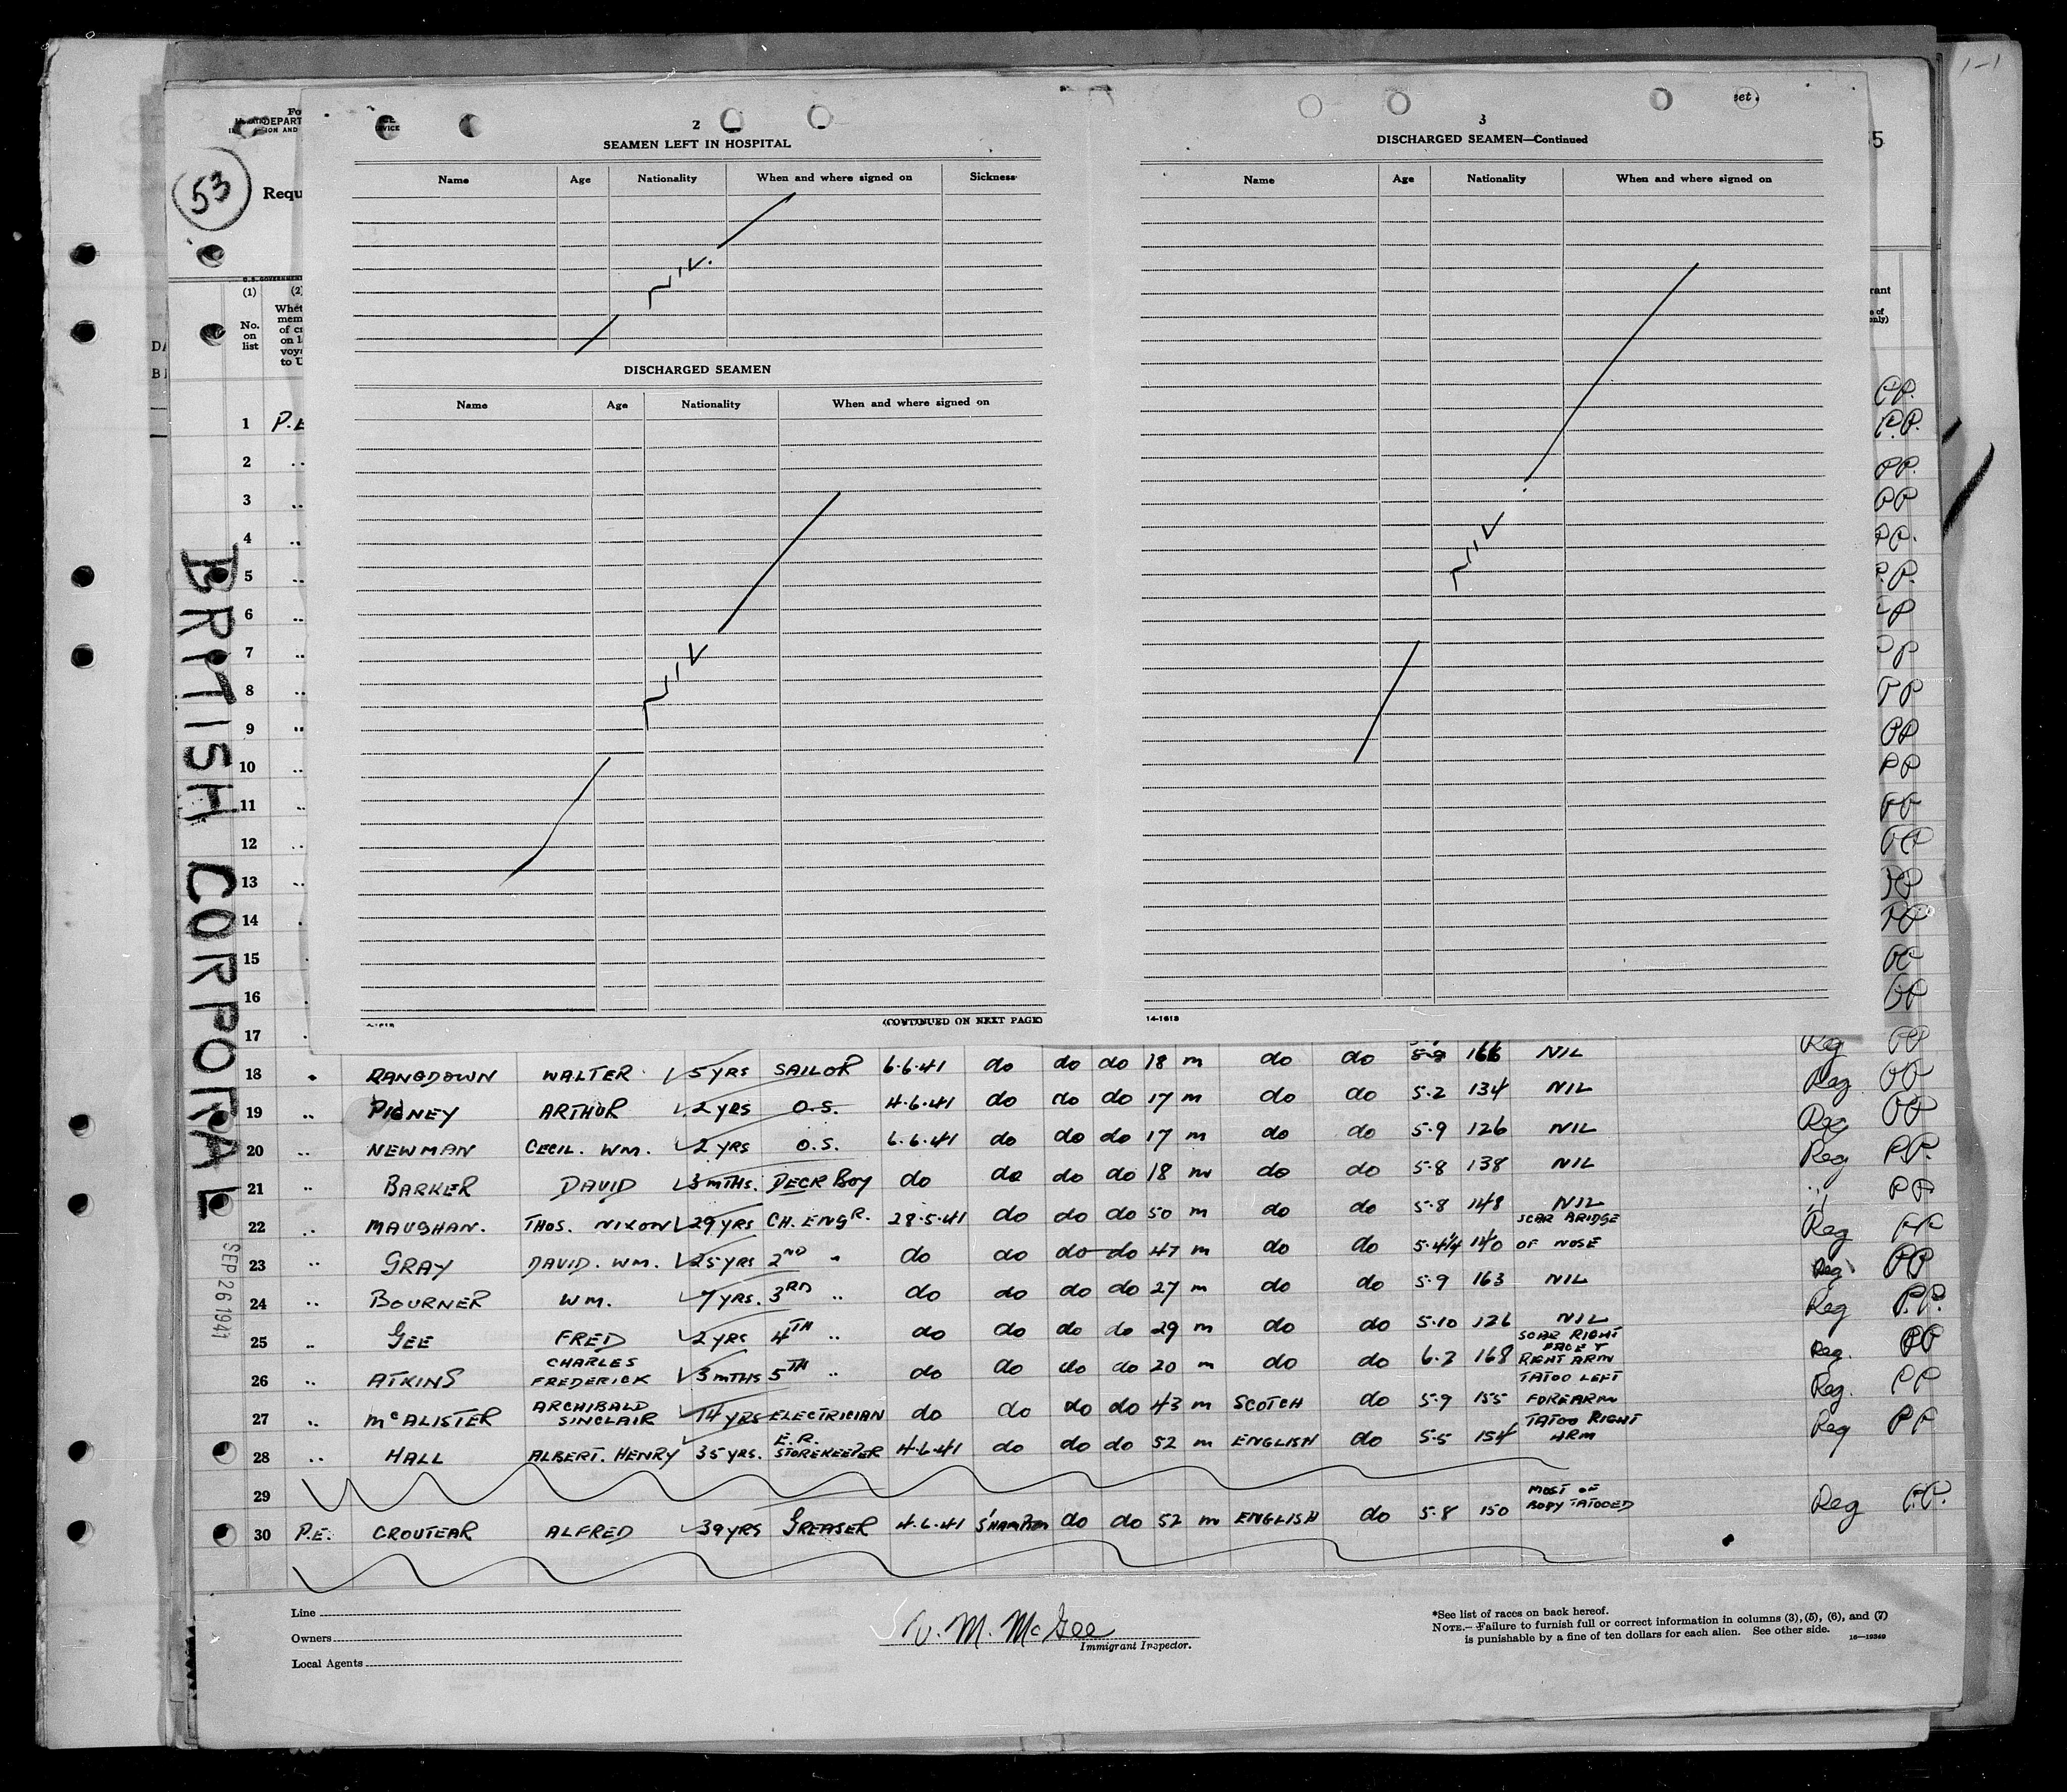 1-1
set.
5
Fo
DEPART
ION AND
VICE
53
Requ
2
SEAMEN LEFT IN HOSPITAL
Name Age Nationality When and where signed on Sickness
NIL.
DISCHARGED SEAMEN
Name Age Nationality When and where signed on
NIL
(CONTINUED ON NEXT PAGE)
3
DISCHARGED SEAMEN—Continued
Name Age Nationality When and where signed on
NIL
14-1613
BRITISH CORPORAL
SEP 26 1941
(1) (2)
No. on list
Whet
mem
of c
on l
voy
to U
rant
e of
only)
1 P.E
2 ..
3 ..
4 ..
5 ..
6 ..
7 ..
8 ..
9 ..
10 ..
11 ..
12 ..
13 ..
14
15
16
17
18 RANGDOWN WALTER 5 YRS SAILOR 6.6.41 do do do 18 m do do 5-8 166 NIL Reg PP
19 .. PIGNEY ARTHUR 2 YRS O.S. 4.6.41 do do do 17 m do do 5-2 134 NIL Reg PP
20 .. NEWMAN CECIL. WM. 2 YRS O.S. 6.6.41 do do do 17 m do do 5-9 126 NIL Reg PP
21 .. BARKER DAVID 3 MTHS. DECK BOY do do do do 18 m do do 5-8 138 NIL Reg P.P.
22 .. MAUGHAN. THOS. NIXON 29 YRS CH. ENGR. 28.5.41 do do do 50 m do do 5-8 148 NIL PP
23 .. GRAY DAVID. WM. 25 YRS 2ND " do do do do 47 m do do 5-4¼ 140 SCAR BRIDGE OF NOSE Reg PP
24 .. BOURNER WM. 7 YRS. 3RD .. do do do do 27 m do do 5-9 163 NIL Reg PP
25 .. GEE FRED 2 YRS 4TH .. do do do do 29 m do do 5-10 126 NIL Reg P.P.
26 .. ATKINS CHARLES FREDERICK 3 MTHS 5TH .. do do do do 20 m do do 6-2 168 SCAR RIGHT FACE & RIGHT ARM Reg. PP
27 .. McALISTER ARCHIBALD SINCLAIR 14 YRS ELECTRICIAN do do do do 43 m SCOTCH do 5-9 155 TATOO LEFT FOREARM Reg. PP
28 .. HALL ALBERT. HENRY 35 YRS. E.R. STOREKEEPER 4.6.41 do do do 52 m ENGLISH do 5-5 154 TATOO RIGHT ARM Reg PP
29
30 P.E. CROUTEAR ALFRED 39 YRS GREASER 4.6.41 S'HAMPTON do do 52 m ENGLISH do 5-8 150 MOST OF BODY TATOOED Reg P.P.
Line
Owners
Local Agents
M. McGee
Immigrant Inspector.
*See list of races on back hereof.
NOTE.—Failure to furnish full or correct information in columns (3), (5), (6), and (7)
is punishable by a fine of ten dollars for each alien. See other side.
16—19349